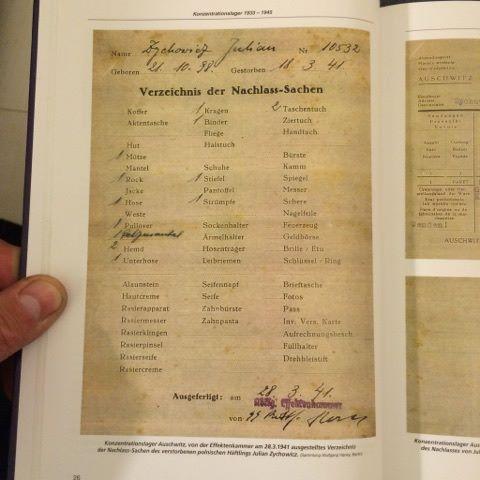 Konzentrationslager 1933 – 1945
Name Zychowicz Julian Nr 10532
Geboren 21. 10. 98. Gestorben 18. 3. 41.
Verzeichnis der Nachlass-Sachen
Koffer 1 Kragen 2 Taschentuch
Aktentasche 1 Binder Ziertuch
Fliege Handtasch.
Hut Halstuch
1 Mütze Bürste
Mantel Schuhe Kamm
1 Rock 1 Stiefel Spiegel
Jacke Pantoffel Messer
1 Hose 1 Strümpfe Schere
Weste Nagelfeile
1 Pullover Sockenhalter Feuerzeug
1 Ärmelhalter Geldbörse
2 Hemd Hosenträger Brille / Etu
1 Unterhose Leibriemen Schlüssel-Ring
Alaunstein Seifennapf Brieftasche
Hautcreme Seife Fotos
Rasierapparat Zahnbürste Pass
Rasiermesser Zahnpasta Inv. Vers. Karte
Rasierklingen Aufrechnungsbesch.
Rasierpinsel Füllhalter
Rasierseife Drehbleistift
Rasiercreme
Ausgefertigt: am 28. 3. 41.
Effektenkammer
von
Konzentrationslager Auschwitz, von der Effektenkammer am 28.3.1941 ausgestelltes Verzeichnis
der Nachlass-Sachen des verstorbenen polnischen Häftlings Julian Zychowicz.
26
AUSCHWITZ
AUSCHWITZ
Konzentrationslager Aus
des Nachlasses von Jul